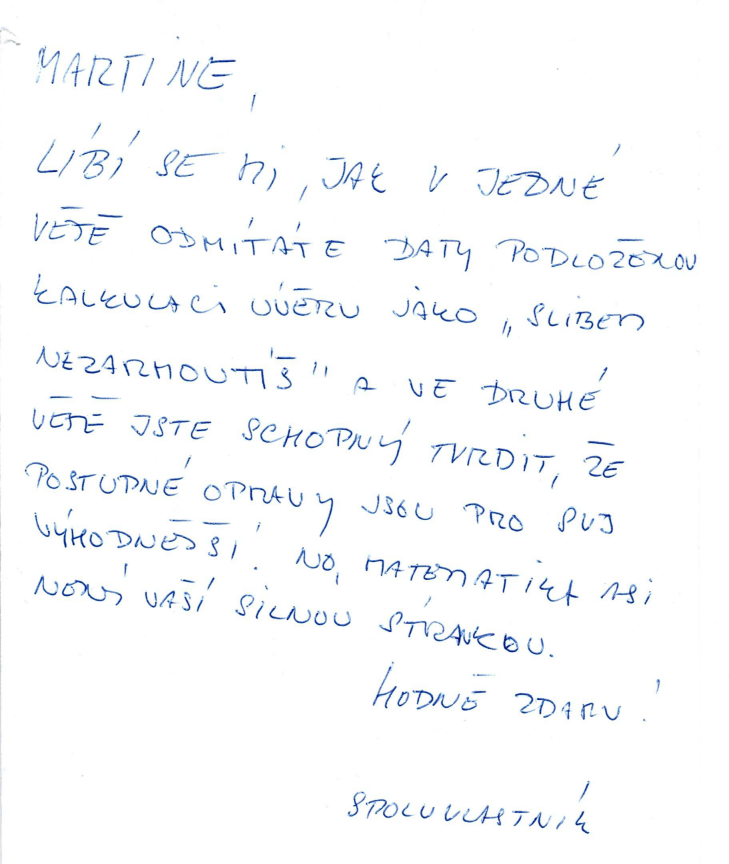 MARTINE,
LÍBÍ SE MI, JAK V JEDNÉ
VĚTĚ ODMÍTÁTE DATY PODLOŽENOU
KALKULACI ÚVĚRU JAKO „SLIBEM
NEZARMOUTÍŠ" A VE DRUHÉ
VĚTĚ JSTE SCHOPNÝ TVRDIT, ŽE
POSTUPNÉ OPRAVY JSOU PRO SVJ
VÝHODNĚJŠÍ! NO, MATEMATIKA ASI
NENÍ VAŠÍ SILNOU STRÁNKOU.
HODNĚ ZDARU!
SPOLUVLASTNÍK